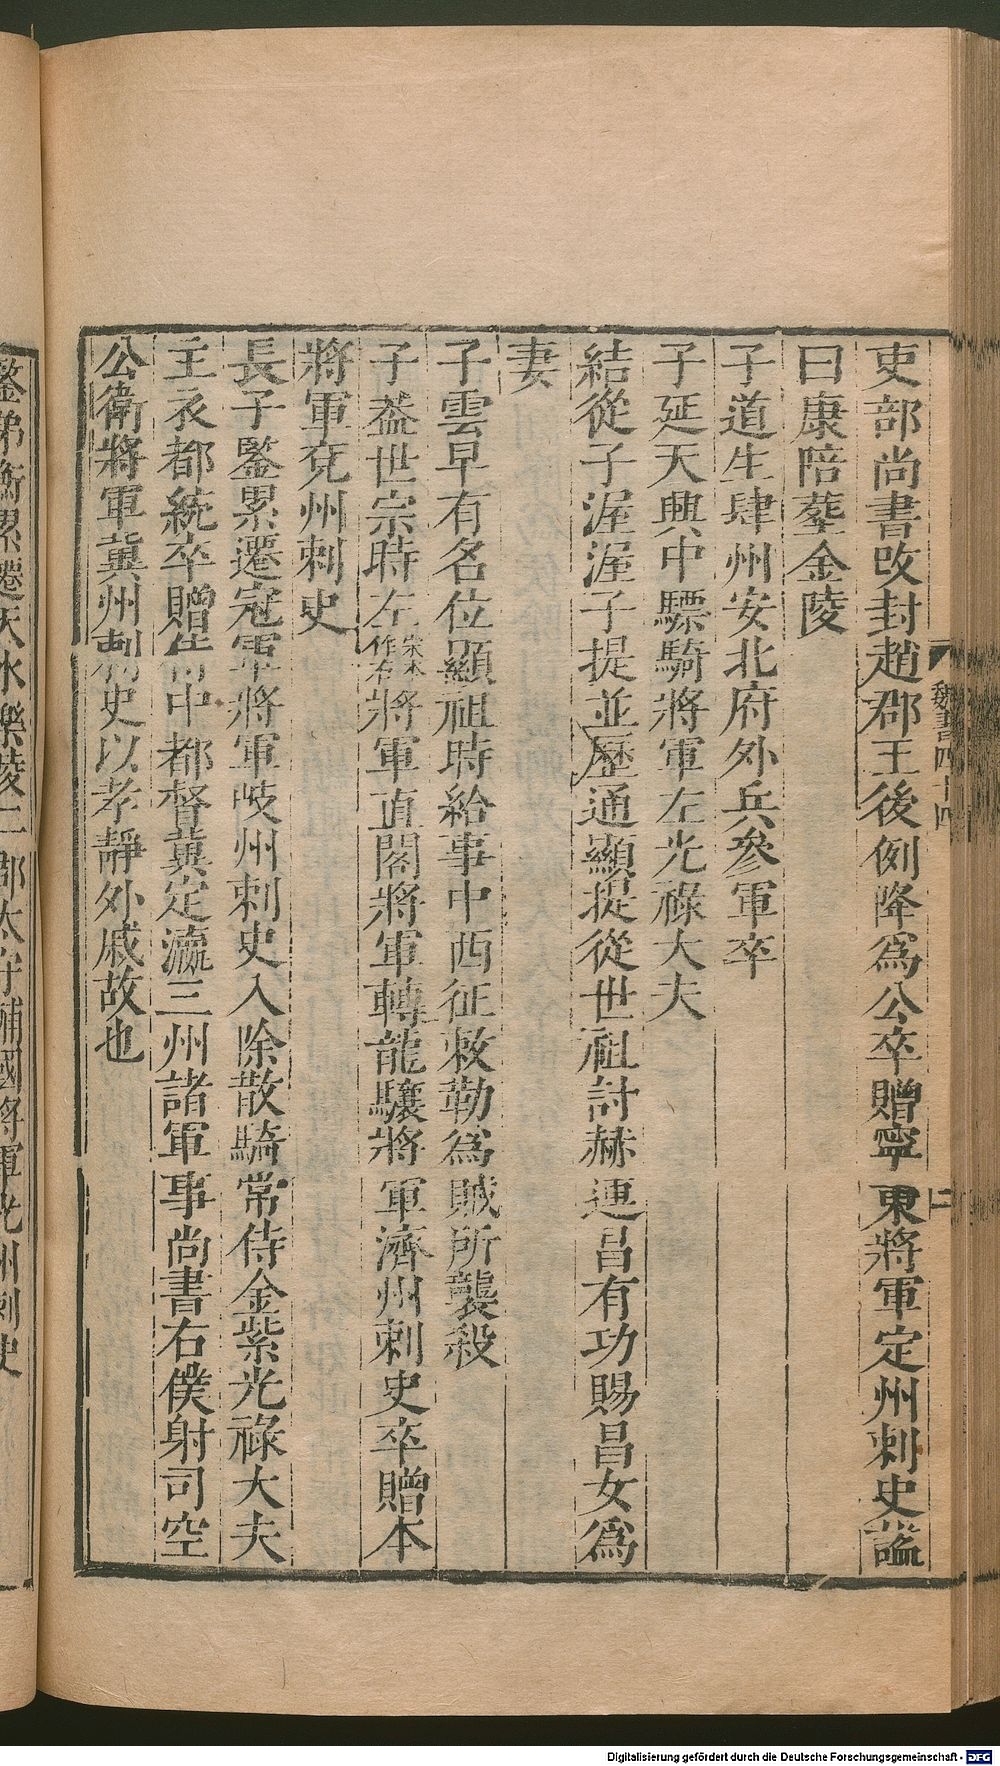 吏部尚書改封趙郡王後例降爲公卒贈寧東將軍定州刺史謚
曰康陪葬金陵
子道生肆州安北府外兵參軍卒
子延天興中驃騎將軍左光祿大夫
結從子渥渥子提並歷通顯提從世祖討赫連昌有功賜昌女爲
妻
子雲早有名位顯祖時給事中西征敕勒爲賊所襲殺
子蓋世宗時左宋本作右將軍直閤將軍轉龍驤將軍濟州刺史卒贈本
將軍兗州刺史
長子鑒累遷冠軍將軍岐州刺史入除散騎常侍金紫光祿大夫
主衣都統卒贈侍中都督冀定瀛三州諸軍事尚書右僕射司空
公衛將軍冀州刺史以孝靜外戚故也
魏書四十四
二
鑒弟衡累遷天水樂陵二郡太守輔國將軍光州刺史
Digitalisierung gefördert durch die Deutsche Forschungsgemeinschaft - DFG